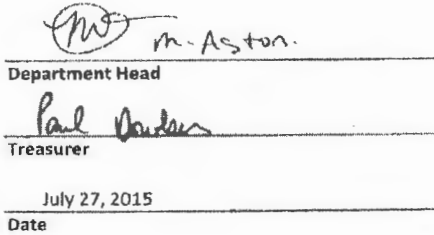 M. Aston.
Department Head
Paul
Treasurer
July 27, 2015
Date